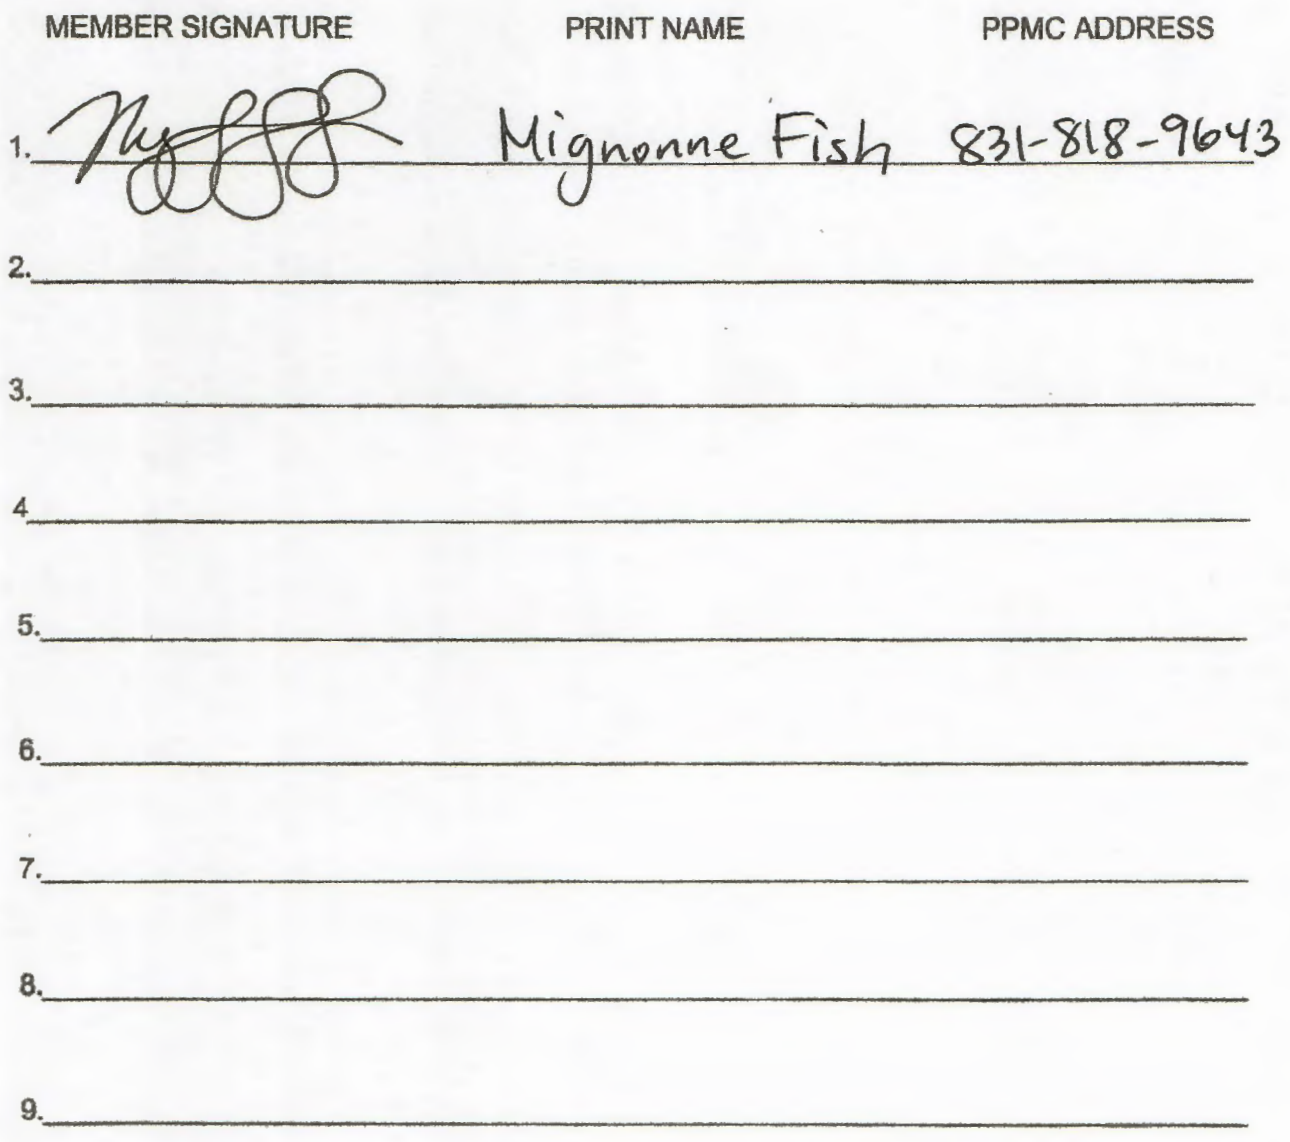 MEMBER SIGNATURE PRINT NAME PPMC ADDRESS
1. Mignonne Fish 831-818-9643
2.
3.
4
5.
6.
7.
8.
9.